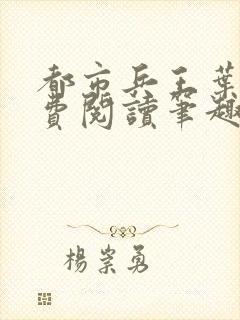 都市兵王葉
費閱讀筆趣
楊崇勇